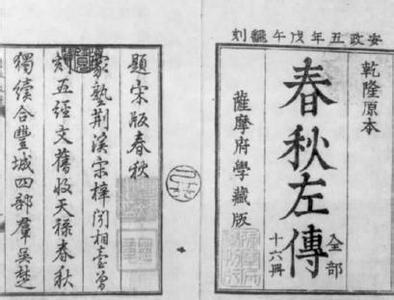 安政五年戊午飜刻
乾隆原本
春秋左傳
全部
十六冊
薩摩府學藏版
題宋版春秋
家塾荆溪宋梓闲相臺曾
刻五經文舊收天禄春秋
獨續合豐城四部羣吳楚